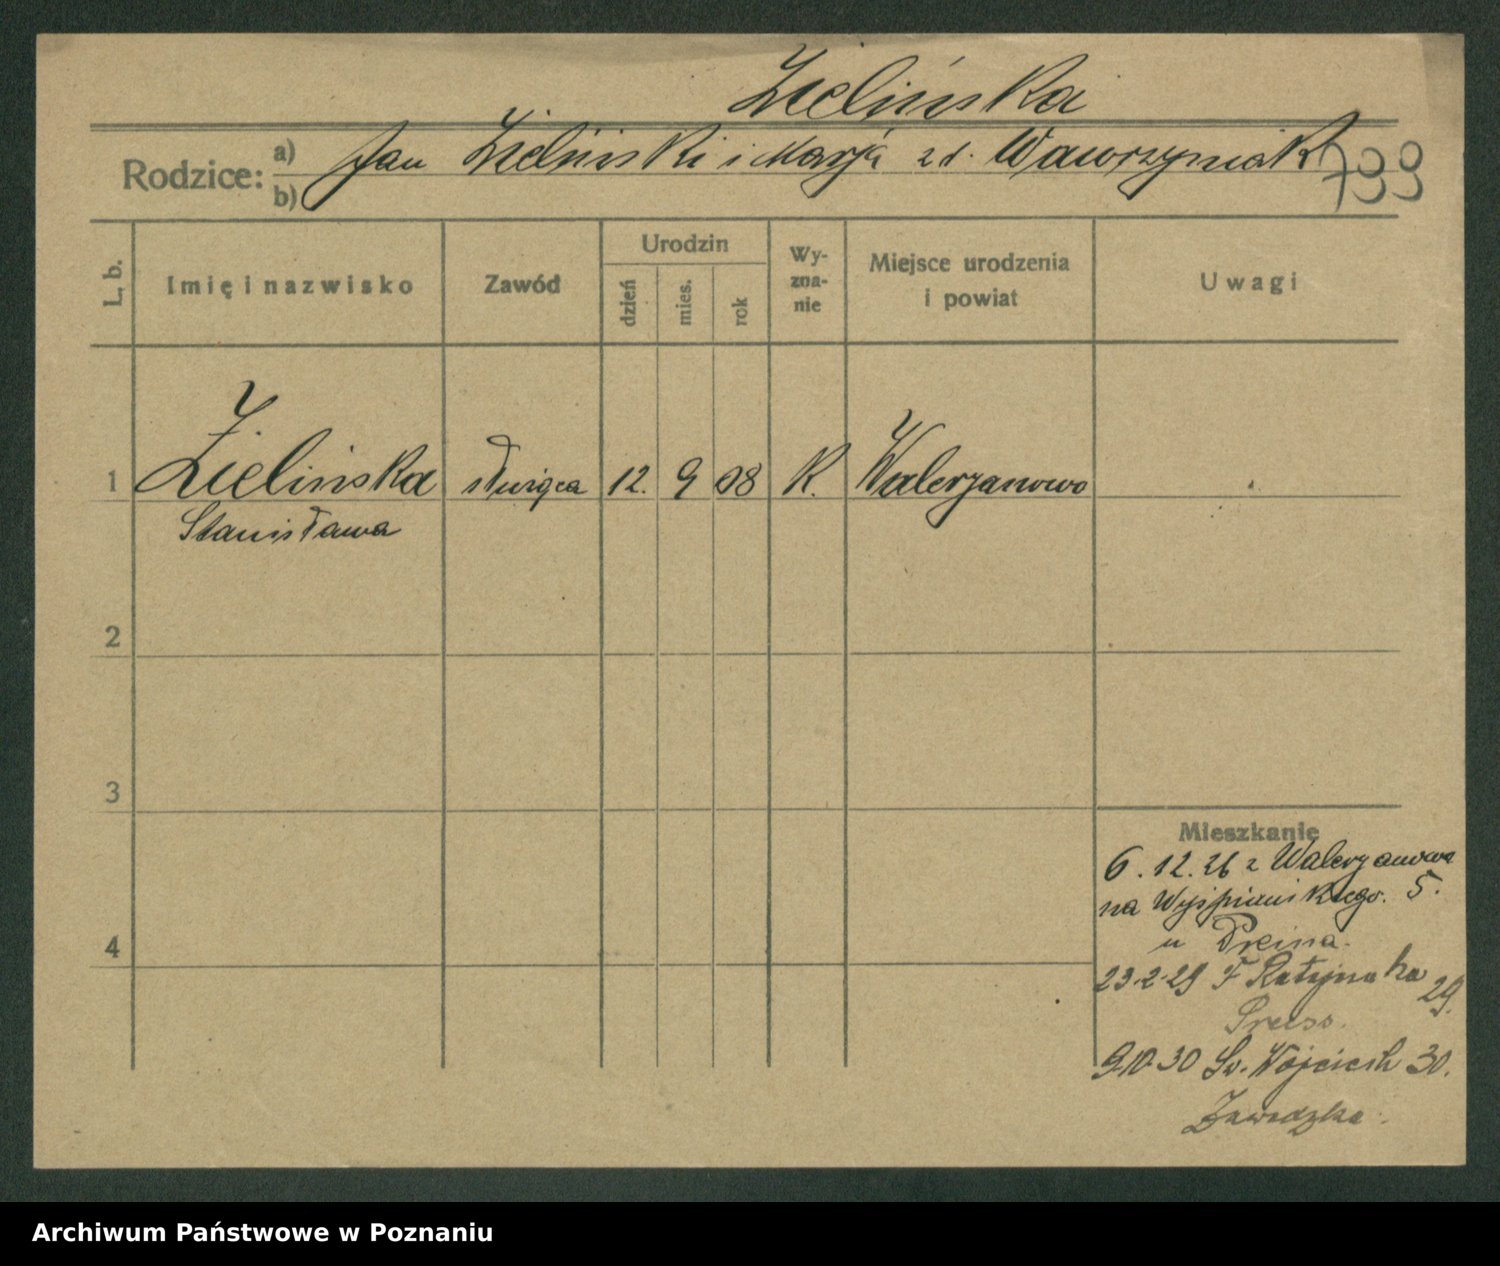 Zielińska
Rodzice: a) Jan Zieliński i Marja zd. Wawrzyniak
b)
799
L. b. Imię i nazwisko Zawód Urodzin dzień mies. rok Wy-zna-nie Miejsce urodzenia i powiat Uwagi
1 Zielińska służąca 12. 9 08 K. Walerjanowo
Stanisława
2
3
4
Mieszkanie
6. 12. 26 z Walerjanowa
na Wyspiańskiego. 5.
u Preina.
23-2-29 F Ratajczaka 29.
Preiss.
9.10 30 Św. Wojciech 30.
Zawadzka.
Archiwum Państwowe w Poznaniu